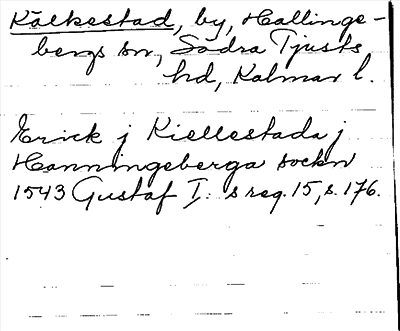 Kälkestad, by, Hallinge-
bergs sn, Södra Tjusts
hd, Kalmar l.
Erick j Kiellestada j
Hanningeberga sockn
1543 Gustaf I: s reg. 15, s. 176.